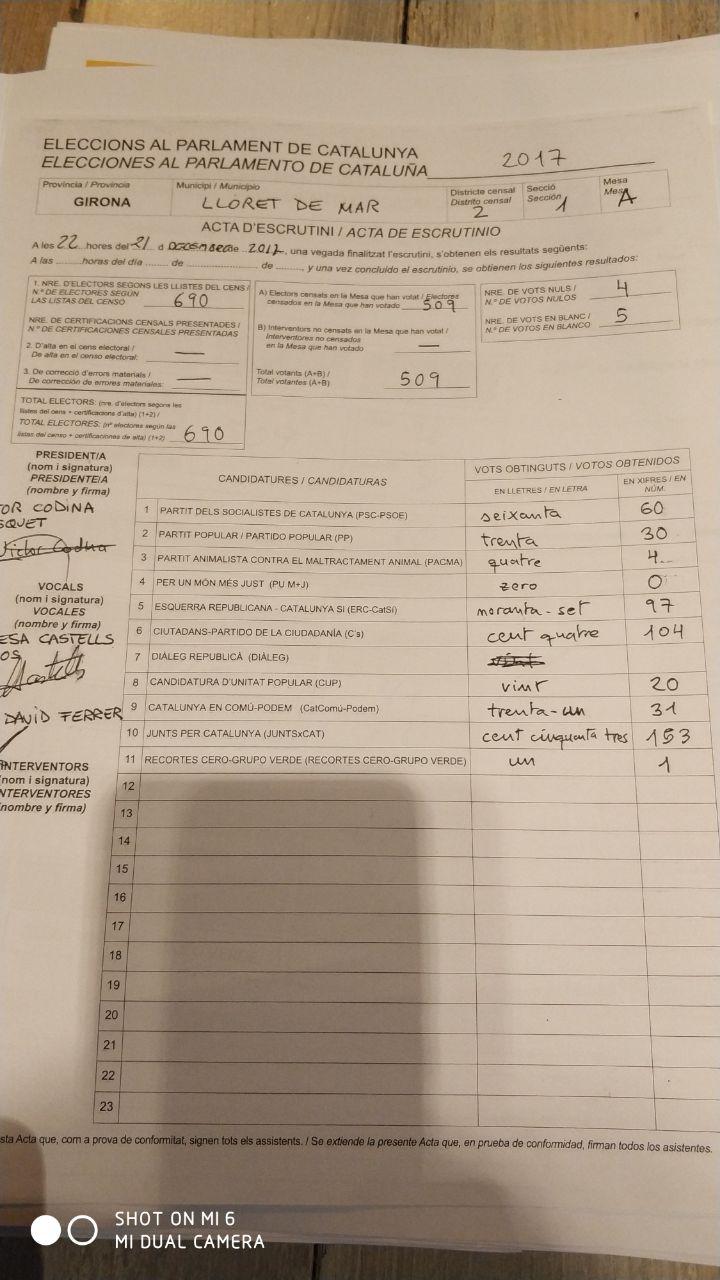 ELECCIONS AL PARLAMENT DE CATALUNYA
ELECCIONES AL PARLAMENTO DE CATALUÑA 2017
Província / Provincia
GIRONA
Municipi / Municipio
LLORET DE MAR
Districte censal
Distrito censal
2
Secció
Sección
1
Mesa
Mesa
A
ACTA D'ESCRUTINI / ACTA DE ESCRUTINIO
A les 22 hores del 21 d DECEMBRE de 2017, una vegada finalitzat l'escrutini, s'obtenen els resultats següents:
A las ........ horas del día ........ de ........ de ........, y una vez concluido el escrutinio, se obtienen los siguientes resultados:
1. NRE. D'ELECTORS SEGONS LES LLISTES DEL CENS /
N.º DE ELECTORES SEGÚN
LAS LISTAS DEL CENSO 690
NRE. DE CERTIFICACIONS CENSALS PRESENTADES /
N.º DE CERTIFICACIONES CENSALES PRESENTADAS
2. D'alta en el cens electoral /
De alta en el censo electoral: —
3. De correcció d'errors materials /
De corrección de errores materiales: —
TOTAL ELECTORS: (nre. d'electors segons les
llistes del cens + certificacions d'alta) (1+2) /
TOTAL ELECTORES: (nº electores según las
listas del censo + certificaciones de alta) (1+2) 690
A) Electors censats en la Mesa que han votat / Electores
censados en la Mesa que han votado 509
B) Interventors no censats en la Mesa que han votat /
Interventores no censados
en la Mesa que han votado —
Total votants (A+B) /
Total votantes (A+B) 509
NRE. DE VOTS NULS /
N.º DE VOTOS NULOS 4
NRE. DE VOTS EN BLANC /
N.º DE VOTOS EN BLANCO 5
PRESIDENT/A
(nom i signatura)
PRESIDENTE/A
(nombre y firma)
TOR CODINA
SQUET
Victor Codina
VOCALS
(nom i signatura)
VOCALES
(nombre y firma)
ESA CASTELLS
OS
Castells
DAVID FERRER
INTERVENTORS
(nom i signatura)
INTERVENTORES
(nombre y firma)
CANDIDATURES / CANDIDATURAS
VOTS OBTINGUTS / VOTOS OBTENIDOS
EN LLETRES / EN LETRA
EN XIFRES / EN
NÚM.
1 PARTIT DELS SOCIALISTES DE CATALUNYA (PSC-PSOE) seixanta 60
2 PARTIT POPULAR / PARTIDO POPULAR (PP) trenta 30
3 PARTIT ANIMALISTA CONTRA EL MALTRACTAMENT ANIMAL (PACMA) quatre 4
4 PER UN MÓN MÉS JUST (PU M+J) zero 0
5 ESQUERRA REPUBLICANA - CATALUNYA SI (ERC-CatSí) noranta-set 97
6 CIUTADANS-PARTIDO DE LA CIUDADANÍA (C's) cent quatre 104
7 DIÀLEG REPUBLICÀ (DIÀLEG)
8 CANDIDATURA D'UNITAT POPULAR (CUP) vint 20
9 CATALUNYA EN COMÚ-PODEM (CatComú-Podem) trenta-un 31
10 JUNTS PER CATALUNYA (JUNTSxCAT) cent cinquanta tres 153
11 RECORTES CERO-GRUPO VERDE (RECORTES CERO-GRUPO VERDE) un 1
12
13
14
15
16
17
18
19
20
21
22
23
sta Acta que, com a prova de conformitat, signen tots els assistents. / Se extiende la presente Acta que, en prueba de conformidad, firman todos los asistentes.
SHOT ON MI 6
MI DUAL CAMERA